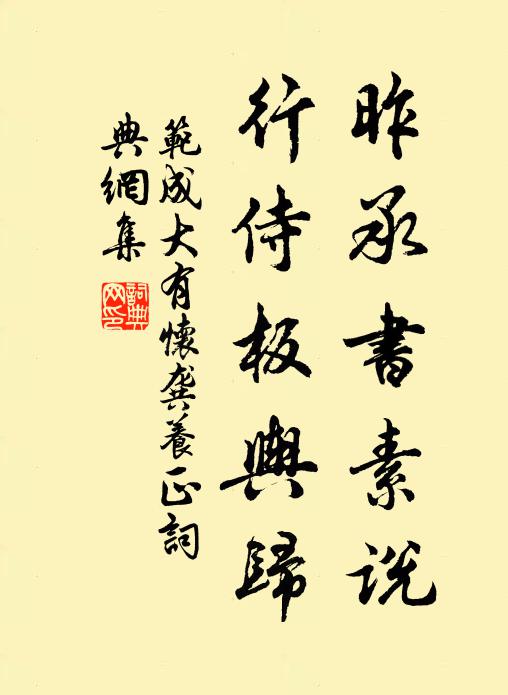 昨承書素說
行侍板輿歸
範成大有懷龔養正詞
典網集
詞典
网印